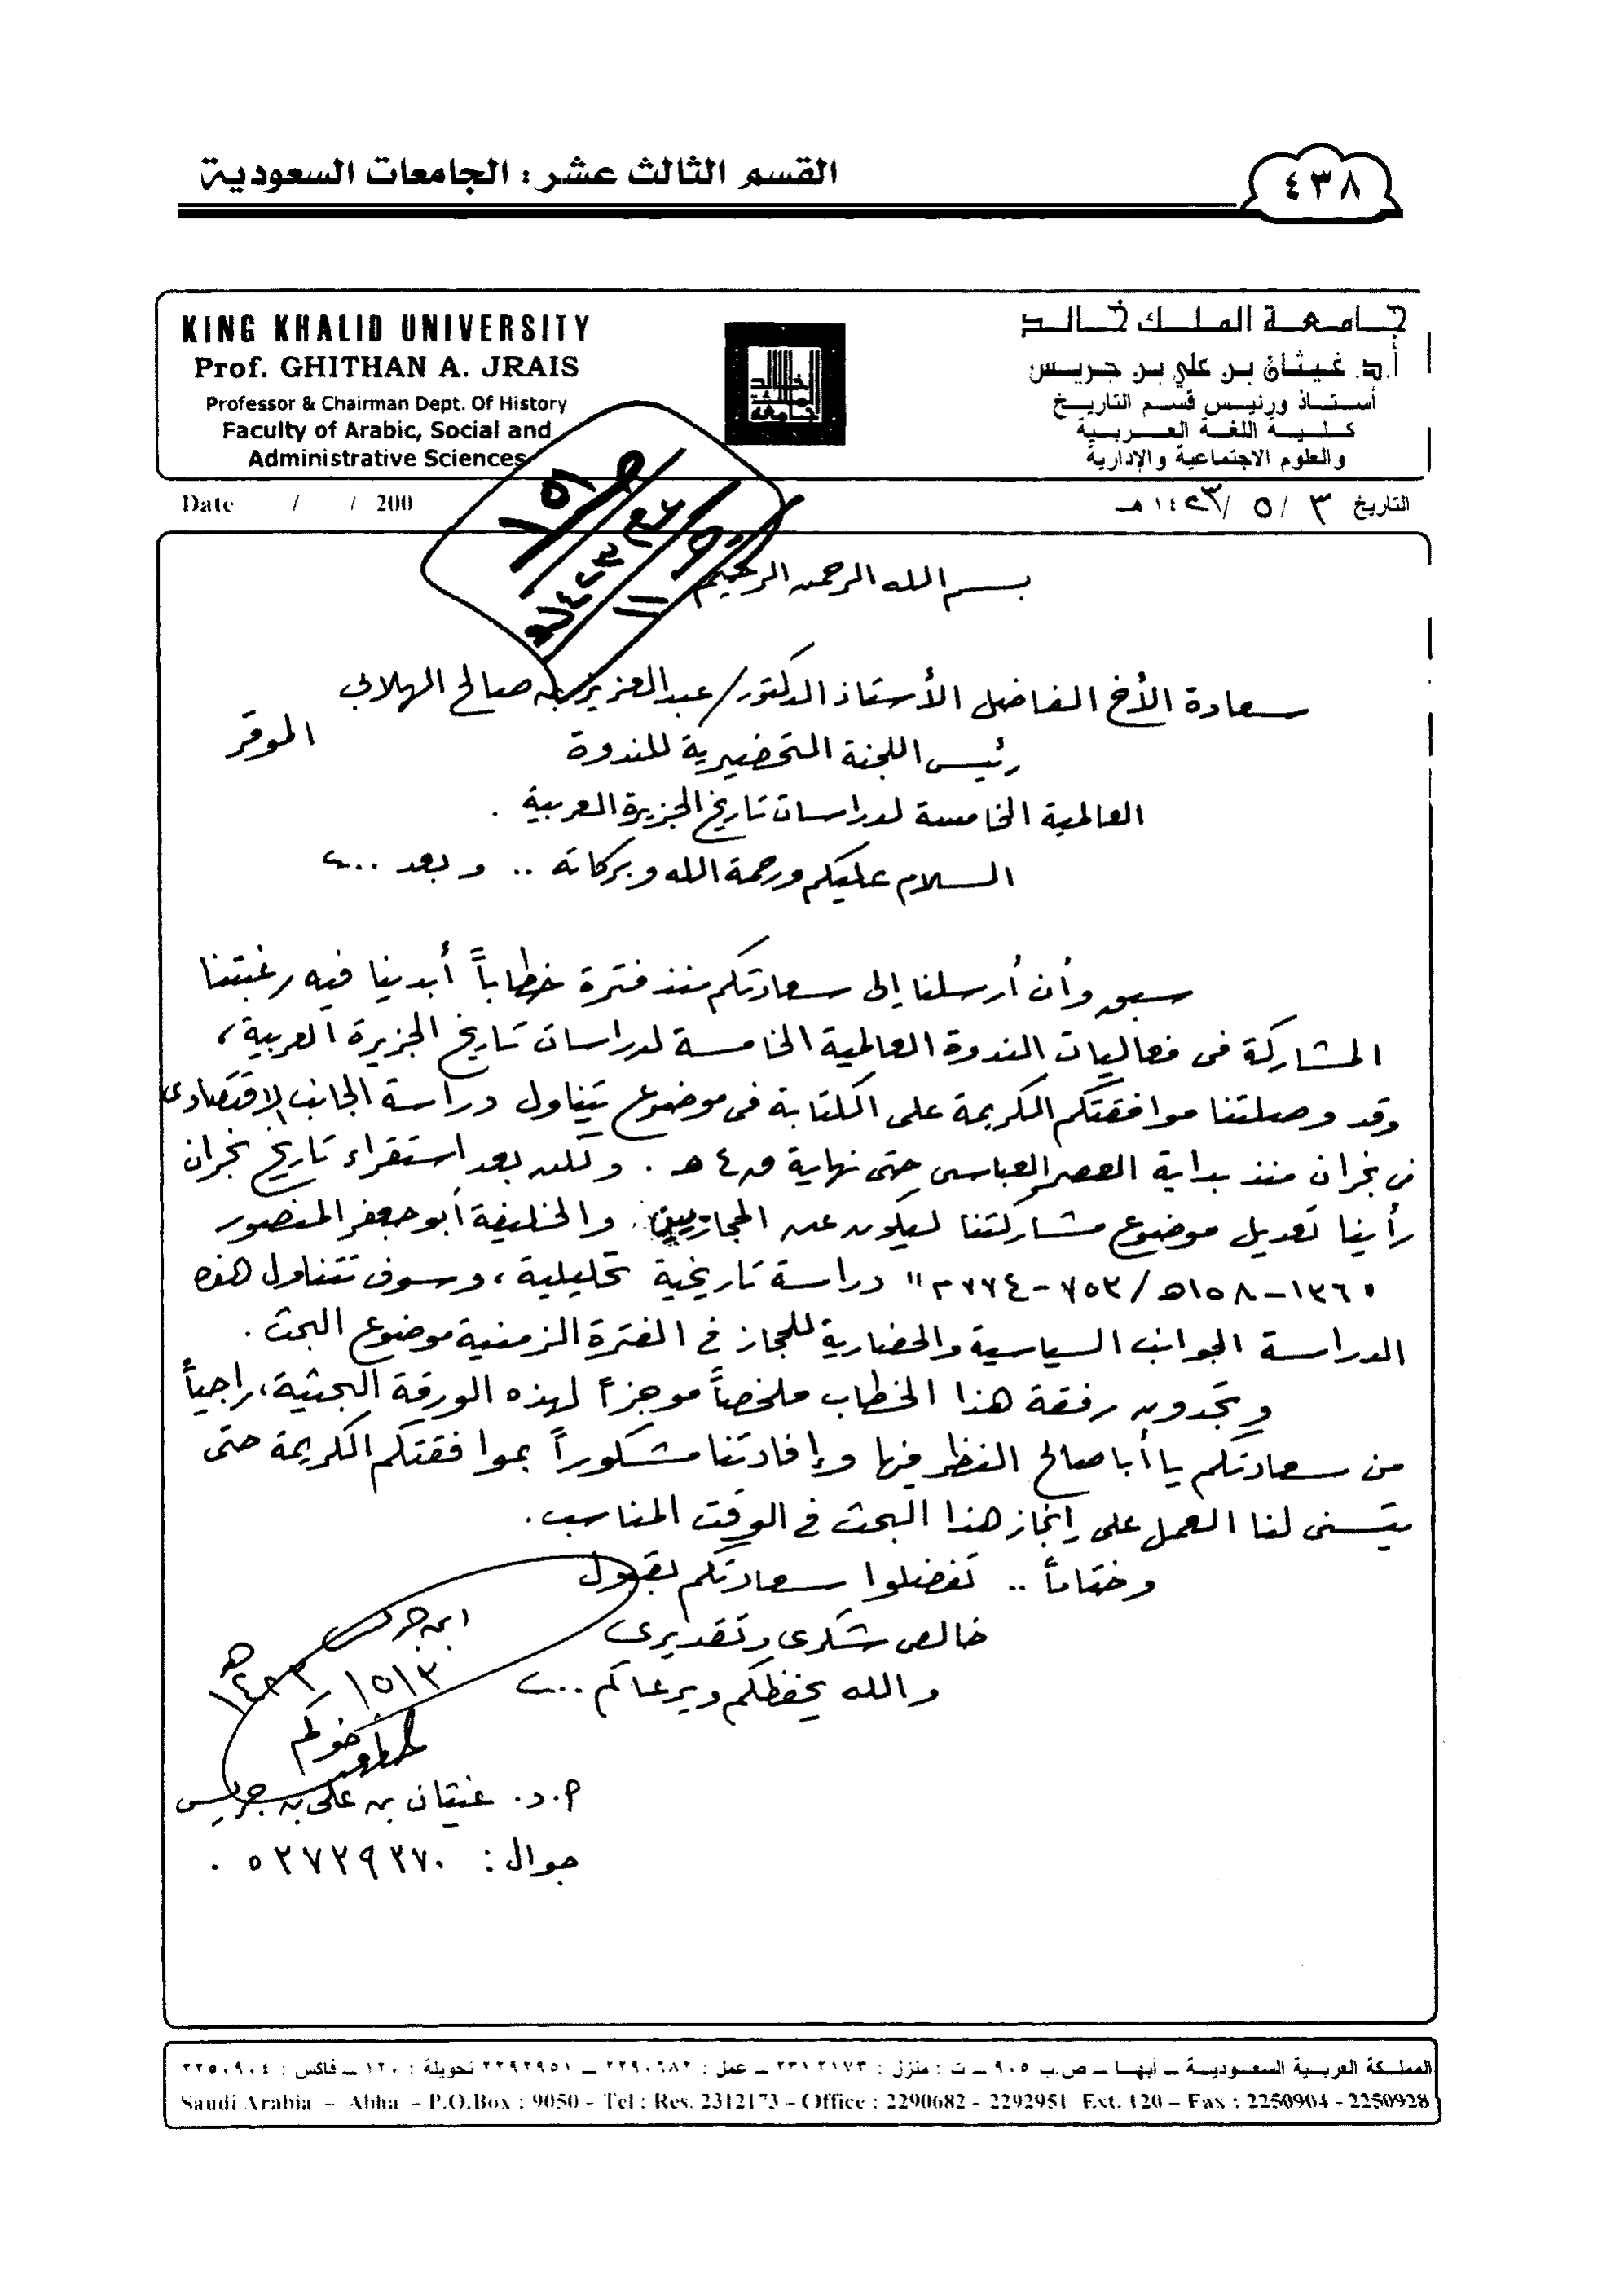 ٤٣٨
القسم الثالث عشر : الجامعات السعودية
KING KHALID UNIVERSITY
Prof. GHITHAN A. JRAIS
Professor & Chairman Dept. Of History
Faculty of Arabic, Social and
Administrative Sciences
جامعة الملك خالد
أ.د. غيثان بن علي بن جريس
أستاذ ورئيس قسم التاريخ
كلية اللغة العربية
والعلوم الاجتماعية والإدارية
Date / / 200
التاريخ ٣ / ٥ / ١٤٢٣ هـ
بسم الله الرحمن الرحيم
سعادة الأخ الفاضل الأستاذ الدكتور/ عبدالعزيز بن صالح الهلابي
رئيس اللجنة التحضيرية للندوة الموقر
العالمية الخامسة لدراسات تاريخ الجزيرة العربية .
السلام عليكم ورحمة الله وبركاته .. وبعد ...
سبق وأن أرسلنا إلى سعادتكم منذ فترة خطاباً أبدينا فيه رغبتنا
المشاركة في فعاليات الندوة العالمية الخامسة لدراسات تاريخ الجزيرة العربية ،
وقد وصلتنا موافقتكم الكريمة على الكتابة في موضوع يتناول دراسة الجانب الاقتصادي
في نجران منذ بداية العصر العباسي حتى نهاية ق ٤ هـ . ولكن بعد استقراء تاريخ نجران
رأينا تعديل موضوع مشاركتنا ليكون عن الحجازيين والخليفة أبو جعفر المنصور
"١٣٦-١٥٨هـ / ٧٥٣-٧٧٤م" دراسة تاريخية تحليلية ، وسوف تتناول هذه
الدراسة الجوانب السياسية والحضارية للحجاز في الفترة الزمنية موضوع البحث .
وتجدون رفقة هذا الخطاب ملخصاً موجزاً لهذه الورقة البحثية ، راجياً
من سعادتكم يا أبا صالح النظر فيها وإفادتنا مشكوراً بموافقتكم الكريمة حتى
يتسنى لنا العمل على إنجاز هذا البحث في الوقت المناسب .
وختاماً .. تفضلوا سعادتكم بقبول
خالص شكري وتقديري
والله يحفظكم ويرعاكم ...
ابن جريس
٣ / ٥ / ١٤٢٣ هـ
أخوكم
أ . د . غيثان بن علي بن جريس
جوال : ٠٥٣٧٢٩٢٧٠
المملكة العربية السعودية – أبها – ص.ب ٩٠٥ – ت : منزل : ٢٣١٢١٧٣ – عمل : ٢٢٩٠٦٨٢ – ٢٢٩٢٩٥١ تحويلة : ١٢٠ – فاكس : ٢٢٥٠٩٠٤
Saudi Arabia – Abha – P.O.Box : 9050 - Tel : Res. 2312173 – Office : 2290682 - 2292951 Ext. 120 – Fax : 2250904 - 2250928